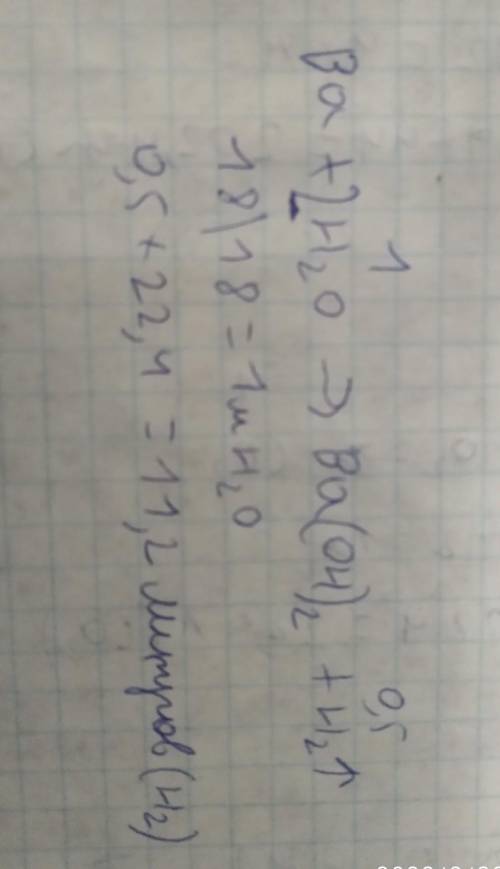 1 0,5
Ba + 2H₂O → Ba(OH)₂ + H₂↑
18|18 = 1м H₂O
0,5 + 22,4 = 11,2 литров (H₂)